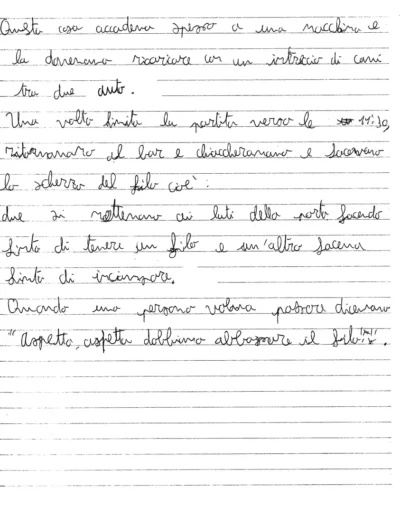 Questa cosa accadeva spesso a una macchina e
la dovevano ricaricare con un intreccio di cavi
tra due auto.
Una volta finita la partita verso le 11:30,
ritornavano al bar e chiaccheravano e facevano
lo scherzo del filo cioè:
due si mettevano ai lati della porta facendo
finta di tenere un filo e un'altro faceva
finta di inciampare.
Quando una persona voleva passare dicevano
"aspetta, aspetta dobbiamo abbassare il filo!!".